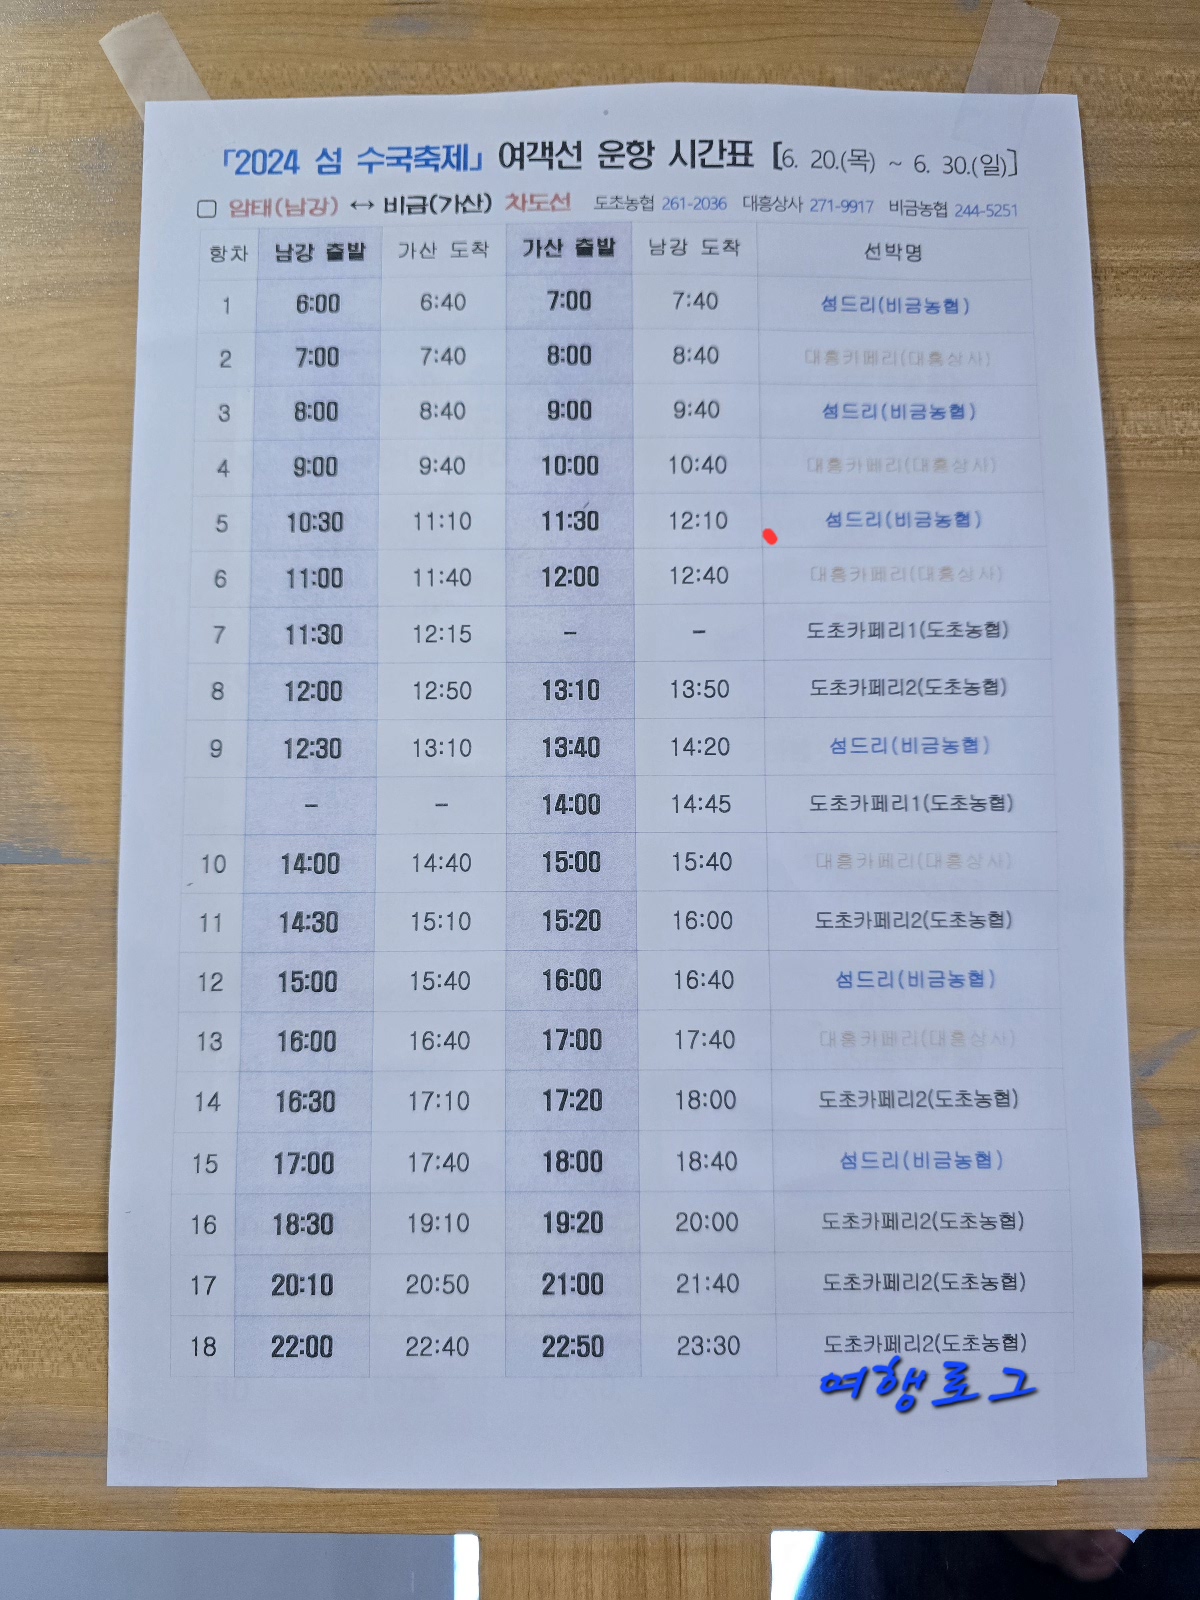 「2024 섬 수국축제」 여객선 운항 시간표 [6. 20.(목) ~ 6. 30.(일)]
□ 암태(남강) ↔ 비금(가산) 차도선 도초농협 261-2036 대흥상사 271-9917 비금농협 244-5251
항차 남강 출발 가산 도착 가산 출발 남강 도착 선박명
1 6:00 6:40 7:00 7:40 섬드리(비금농협)
2 7:00 7:40 8:00 8:40 대흥카페리(대흥상사)
3 8:00 8:40 9:00 9:40 섬드리(비금농협)
4 9:00 9:40 10:00 10:40 대흥카페리(대흥상사)
5 10:30 11:10 11:30 12:10 섬드리(비금농협)
6 11:00 11:40 12:00 12:40 대흥카페리(대흥상사)
7 11:30 12:15 - - 도초카페리1(도초농협)
8 12:00 12:50 13:10 13:50 도초카페리2(도초농협)
9 12:30 13:10 13:40 14:20 섬드리(비금농협)
- - 14:00 14:45 도초카페리1(도초농협)
10 14:00 14:40 15:00 15:40 대흥카페리(대흥상사)
11 14:30 15:10 15:20 16:00 도초카페리2(도초농협)
12 15:00 15:40 16:00 16:40 섬드리(비금농협)
13 16:00 16:40 17:00 17:40 대흥카페리(대흥상사)
14 16:30 17:10 17:20 18:00 도초카페리2(도초농협)
15 17:00 17:40 18:00 18:40 섬드리(비금농협)
16 18:30 19:10 19:20 20:00 도초카페리2(도초농협)
17 20:10 20:50 21:00 21:40 도초카페리2(도초농협)
18 22:00 22:40 22:50 23:30 도초카페리2(도초농협)
여행로그